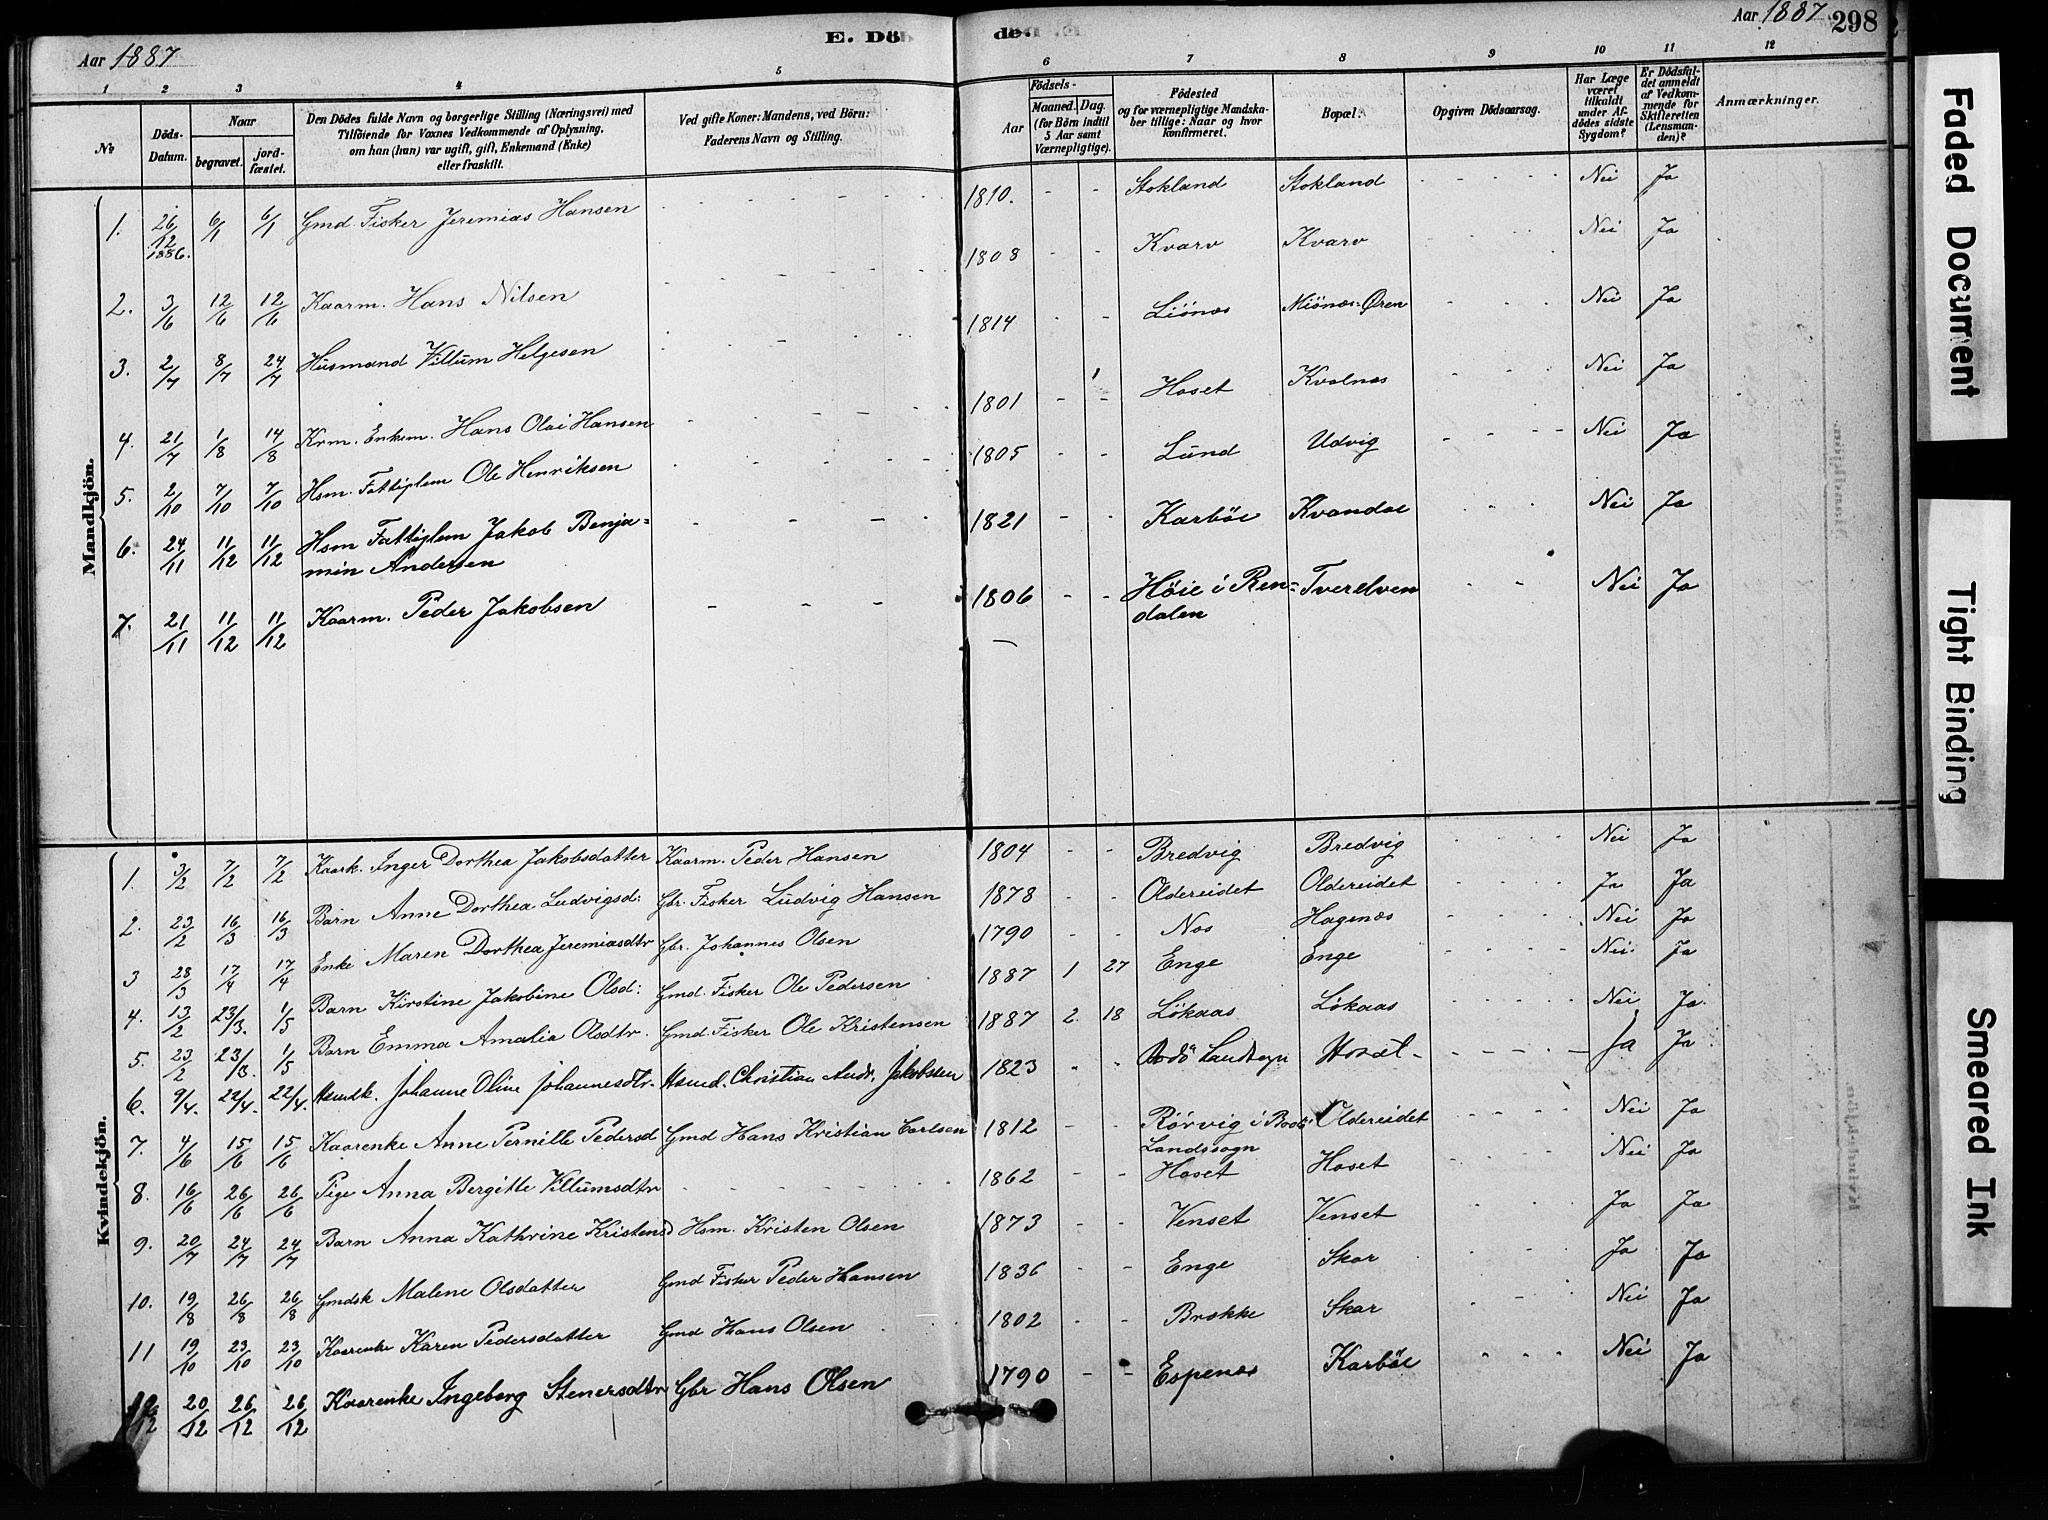 Aar 1887
E. Dö
de.
Aar 1887
298
1 2 3 4 5 6 7 8 9 10 11 12
No
Döds-Datum.
Naar
begravet.
jord-fæstet.
Den Dödes fulde Navn og borgerlige Stilling (Næringsvei) med
Tilföiende for Voxnes Vedkommende af Oplysning,
om han (hun) var ugift, gift, Enkemand (Enke)
eller fraskilt.
Ved gifte Koner: Mandens, ved Börn:
Faderens Navn og Stilling.
Födsels-
Aar
Maaned. Dag.
(for Börn indtil
5 Aar samt
Værnepligtige).
Födested
og for værnepligtige Mandska-
ber tillige: Naar og hvor
konfirmeret.
Bopæl.
Opgiven Dödsaarsag.
Har Læge
været
tilkaldt
under Af-
dödes sidste
Sygdom?
Er Dödsfal-
det anmeldt
af Vedkom-
mende for
Skifteretten
(Lensman-
den)?
Anmærkninger.
Mandkjön.
1. 26/12 1886. 6/1 6/1 Gmd. Fisker Jeremias Hansen - - - 1810. - - Stokland Stokland - - - Nei Ja
2. 3/6 12/6 12/6 Kaarm. Hans Nilsen - - - 1808 - - Kvarv Kvarv - - - Nei Ja
3. 2/7 8/7 24/7 Husmand Villum Helgesen - - - 1814 - - Liönæs Miönæs-Øren - - - Nei Ja
4. 21/7 1/8 14/8 Krm. Enkem. Hans Olai Hansen - - - 1801 - - Hoset Kvalnæs - - - Nei Ja
5. 2/10 7/10 7/10 Hsm. Fattiglem Ole Henriksen - - - 1805 - - Lund Udvig - - - Nei Ja
6. 24/11 11/12 11/12 Hsm Fattiglem Jakob Benja=
min Andersen - - - 1821 - - Karböe Kvandal - - - Nei Ja
7. 21/11 11/12 11/12 Kaarm. Peder Jakobsen - - - 1806 - - Höie i Ren=
dalen Tverelven - - Nei Ja
Kvindekjön.
1. 3/2 7/2 7/2 Kaark. Inger Dorthea Jakobsdatter Kaarm. Peder Hansen 1804 - - Bredvig Bredvig - - - Nei Ja
2. 23/2 16/3 16/3 Barn Anne Dorthea Ludvigsd: Gbr. Fisker Ludvig Hansen 1878 - - Oldereidet Oldereidet - - - Ja Ja
3 28/3 17/4 17/4 Enke Maren Dorthea Jeremiasdtr Gbr. Johannes Olsen 1790 - - Nos Hagenæs - - - Nei Ja
4. 13/2 23/3. 1/5 Barn Kirstine Jakobine Olsd: Gmd. Fisker Ole Pedersen 1887 1 27 Enge Enge - - - Nei. Ja
5. 23/2 23/3. 1/5 Barn Emma Amalia Olsdtr. Gmd. Fisker Ole Kristensen 1887 2. 18 Lökaas Lökaas - - - Nei Ja.
6. 9/4. 22/4. 22/4. Hsmdk. Johanne Oline Johannesdtr. Hsmd. Christian Andr. Jakobsen 1823 - - Bodö Landsogn Hoset - - - Ja Ja
7. 4/6 15/6 15/6 Kaarenke Anne Pernille Pedersd Gmd Hans Kristian Carlsen 1812 - - Rörvig i Bodö
Landssogn Oldereidet - - - Nei Ja
8. 16/6 26/6 26/6 Pige Anna Bergitte Villumsdtr - - - 1862 - - Hoset Hoset - - - Nei Ja
9. 20/7 24/7 24/7 Barn Anna Kathrine Kristensd Hsm. Kristen Olsen 1873 - - Venset Venset - - - Ja Ja
10. 19/8 26/8 26/8 Gmdsk Malene Olsdatter Gmd Fisker Peder Hansen 1836 - - Enge Skar - - Ja Ja
11 19/10 23/10 23/10 Kaarenke Karen Pedersdatter Gmd Hans Olsen 1802 - - Brække Skar - - Nei Ja
12 20/12 26/12 26/12 Kaarenke Ingeborg Stenersdtr Gbr Hans Olsen 1790 - - Espenæs Karböe - - - Nei Ja
Faded Document
Tight Binding
Smeared Ink